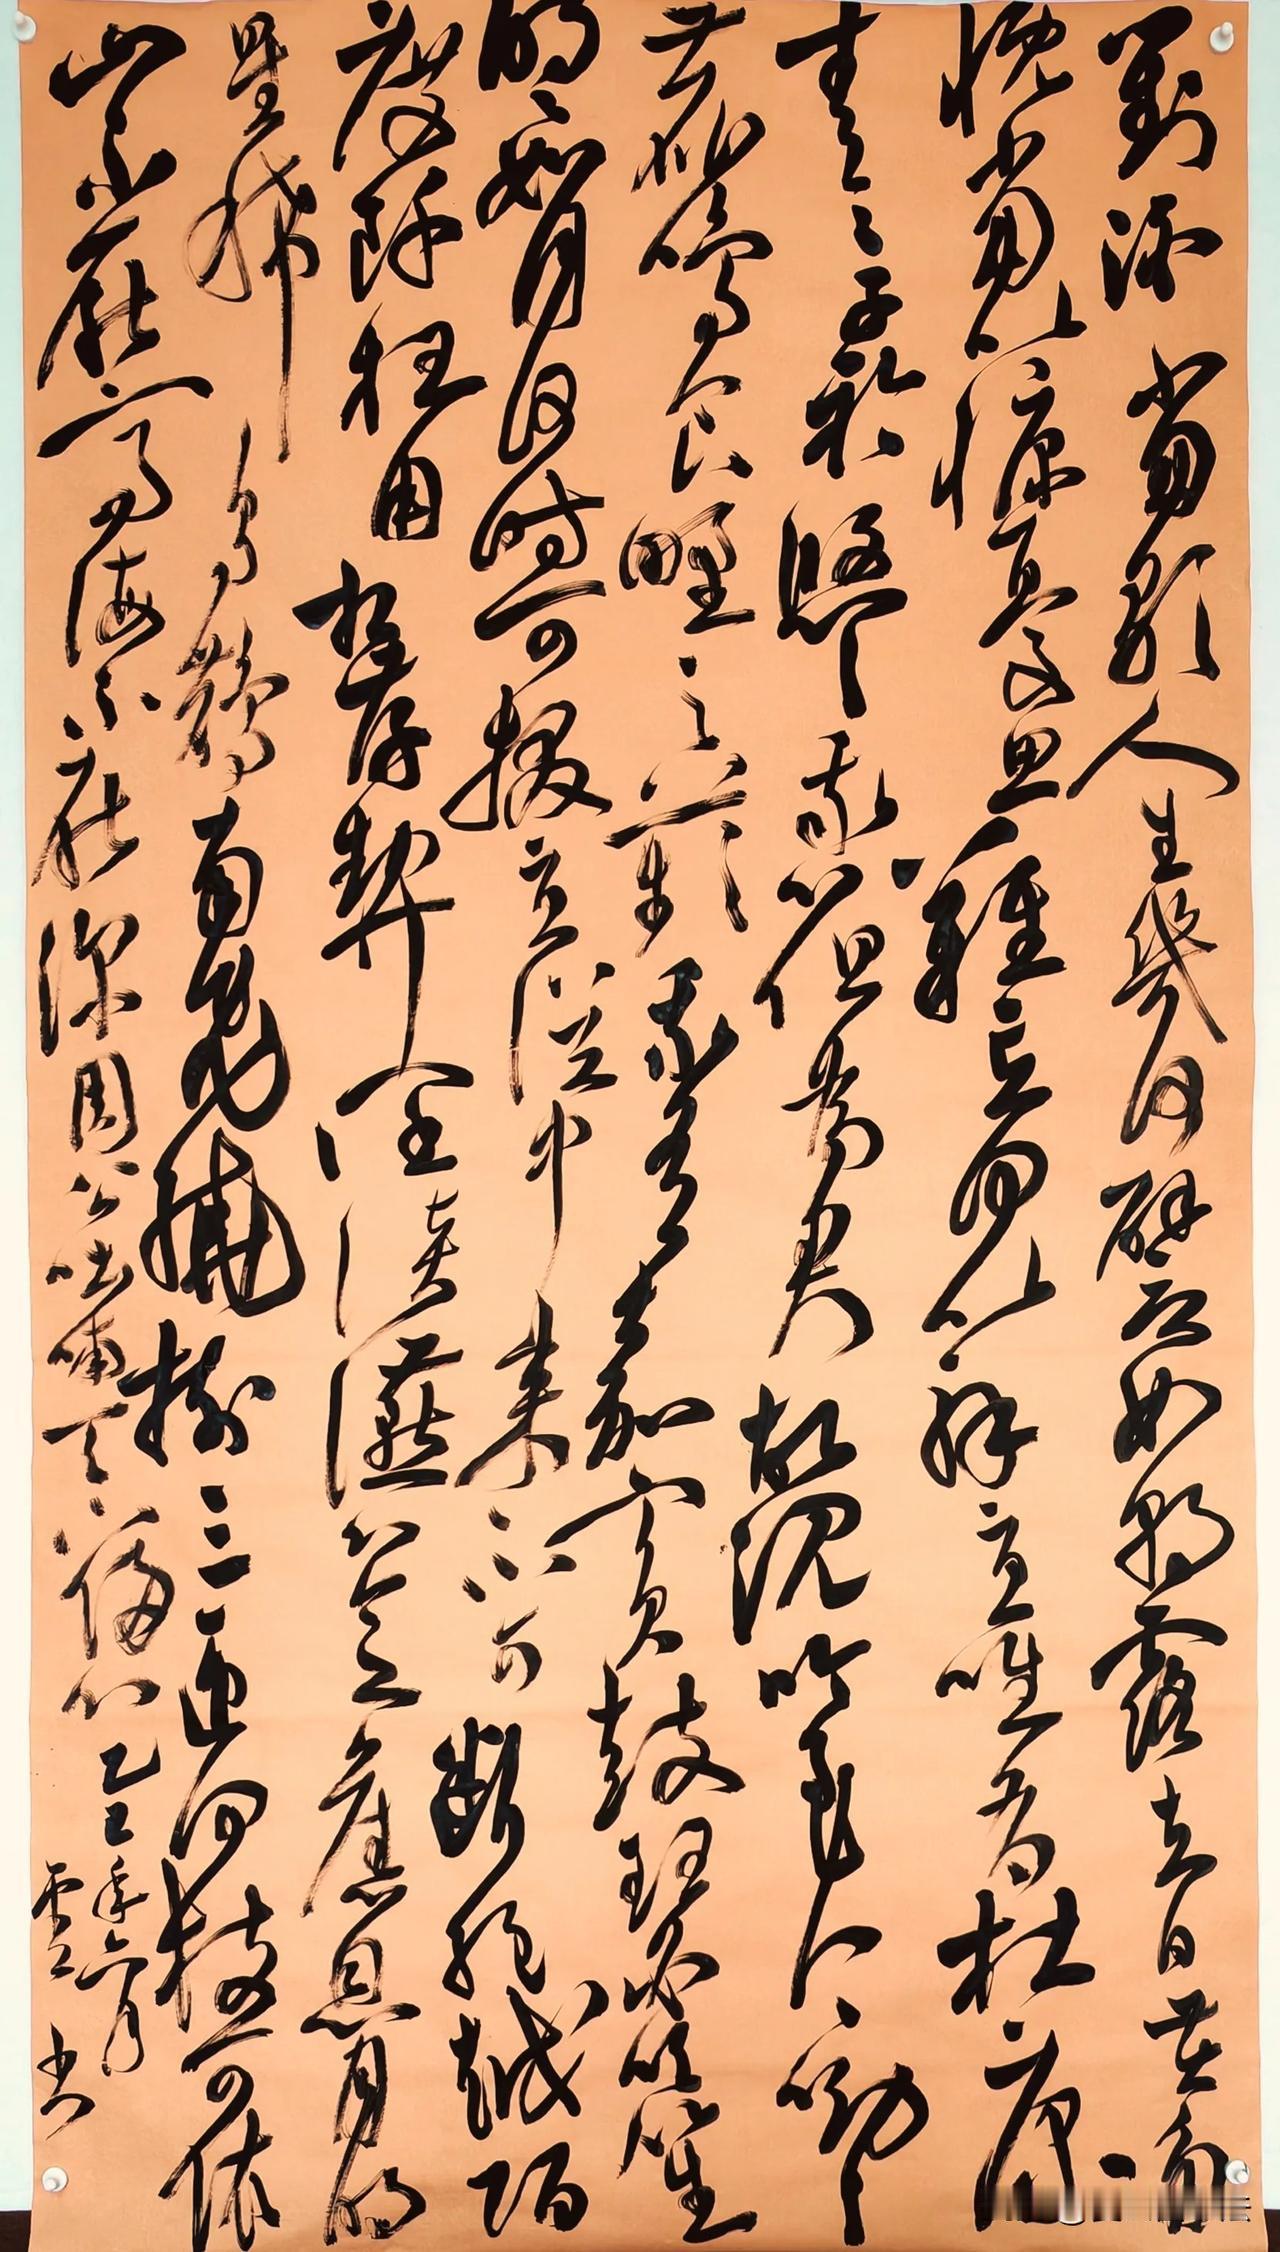 對酒當歌人生幾何譬如朝露去日苦多
慨當以慷憂思難忘何以解憂唯有杜康
青青子衿悠悠我心但為君故沉吟至今呦呦
鹿鳴食野之苹我有嘉賓鼓瑟吹笙
明明如月何時可掇憂從中來不可斷絕越陌
度阡枉用相存契闊談讌心念舊恩月明
星稀烏鵲南飛繞樹三匝何枝可依
山不厭高海不厭深周公吐哺天下歸心乙巳年六月
雲 書